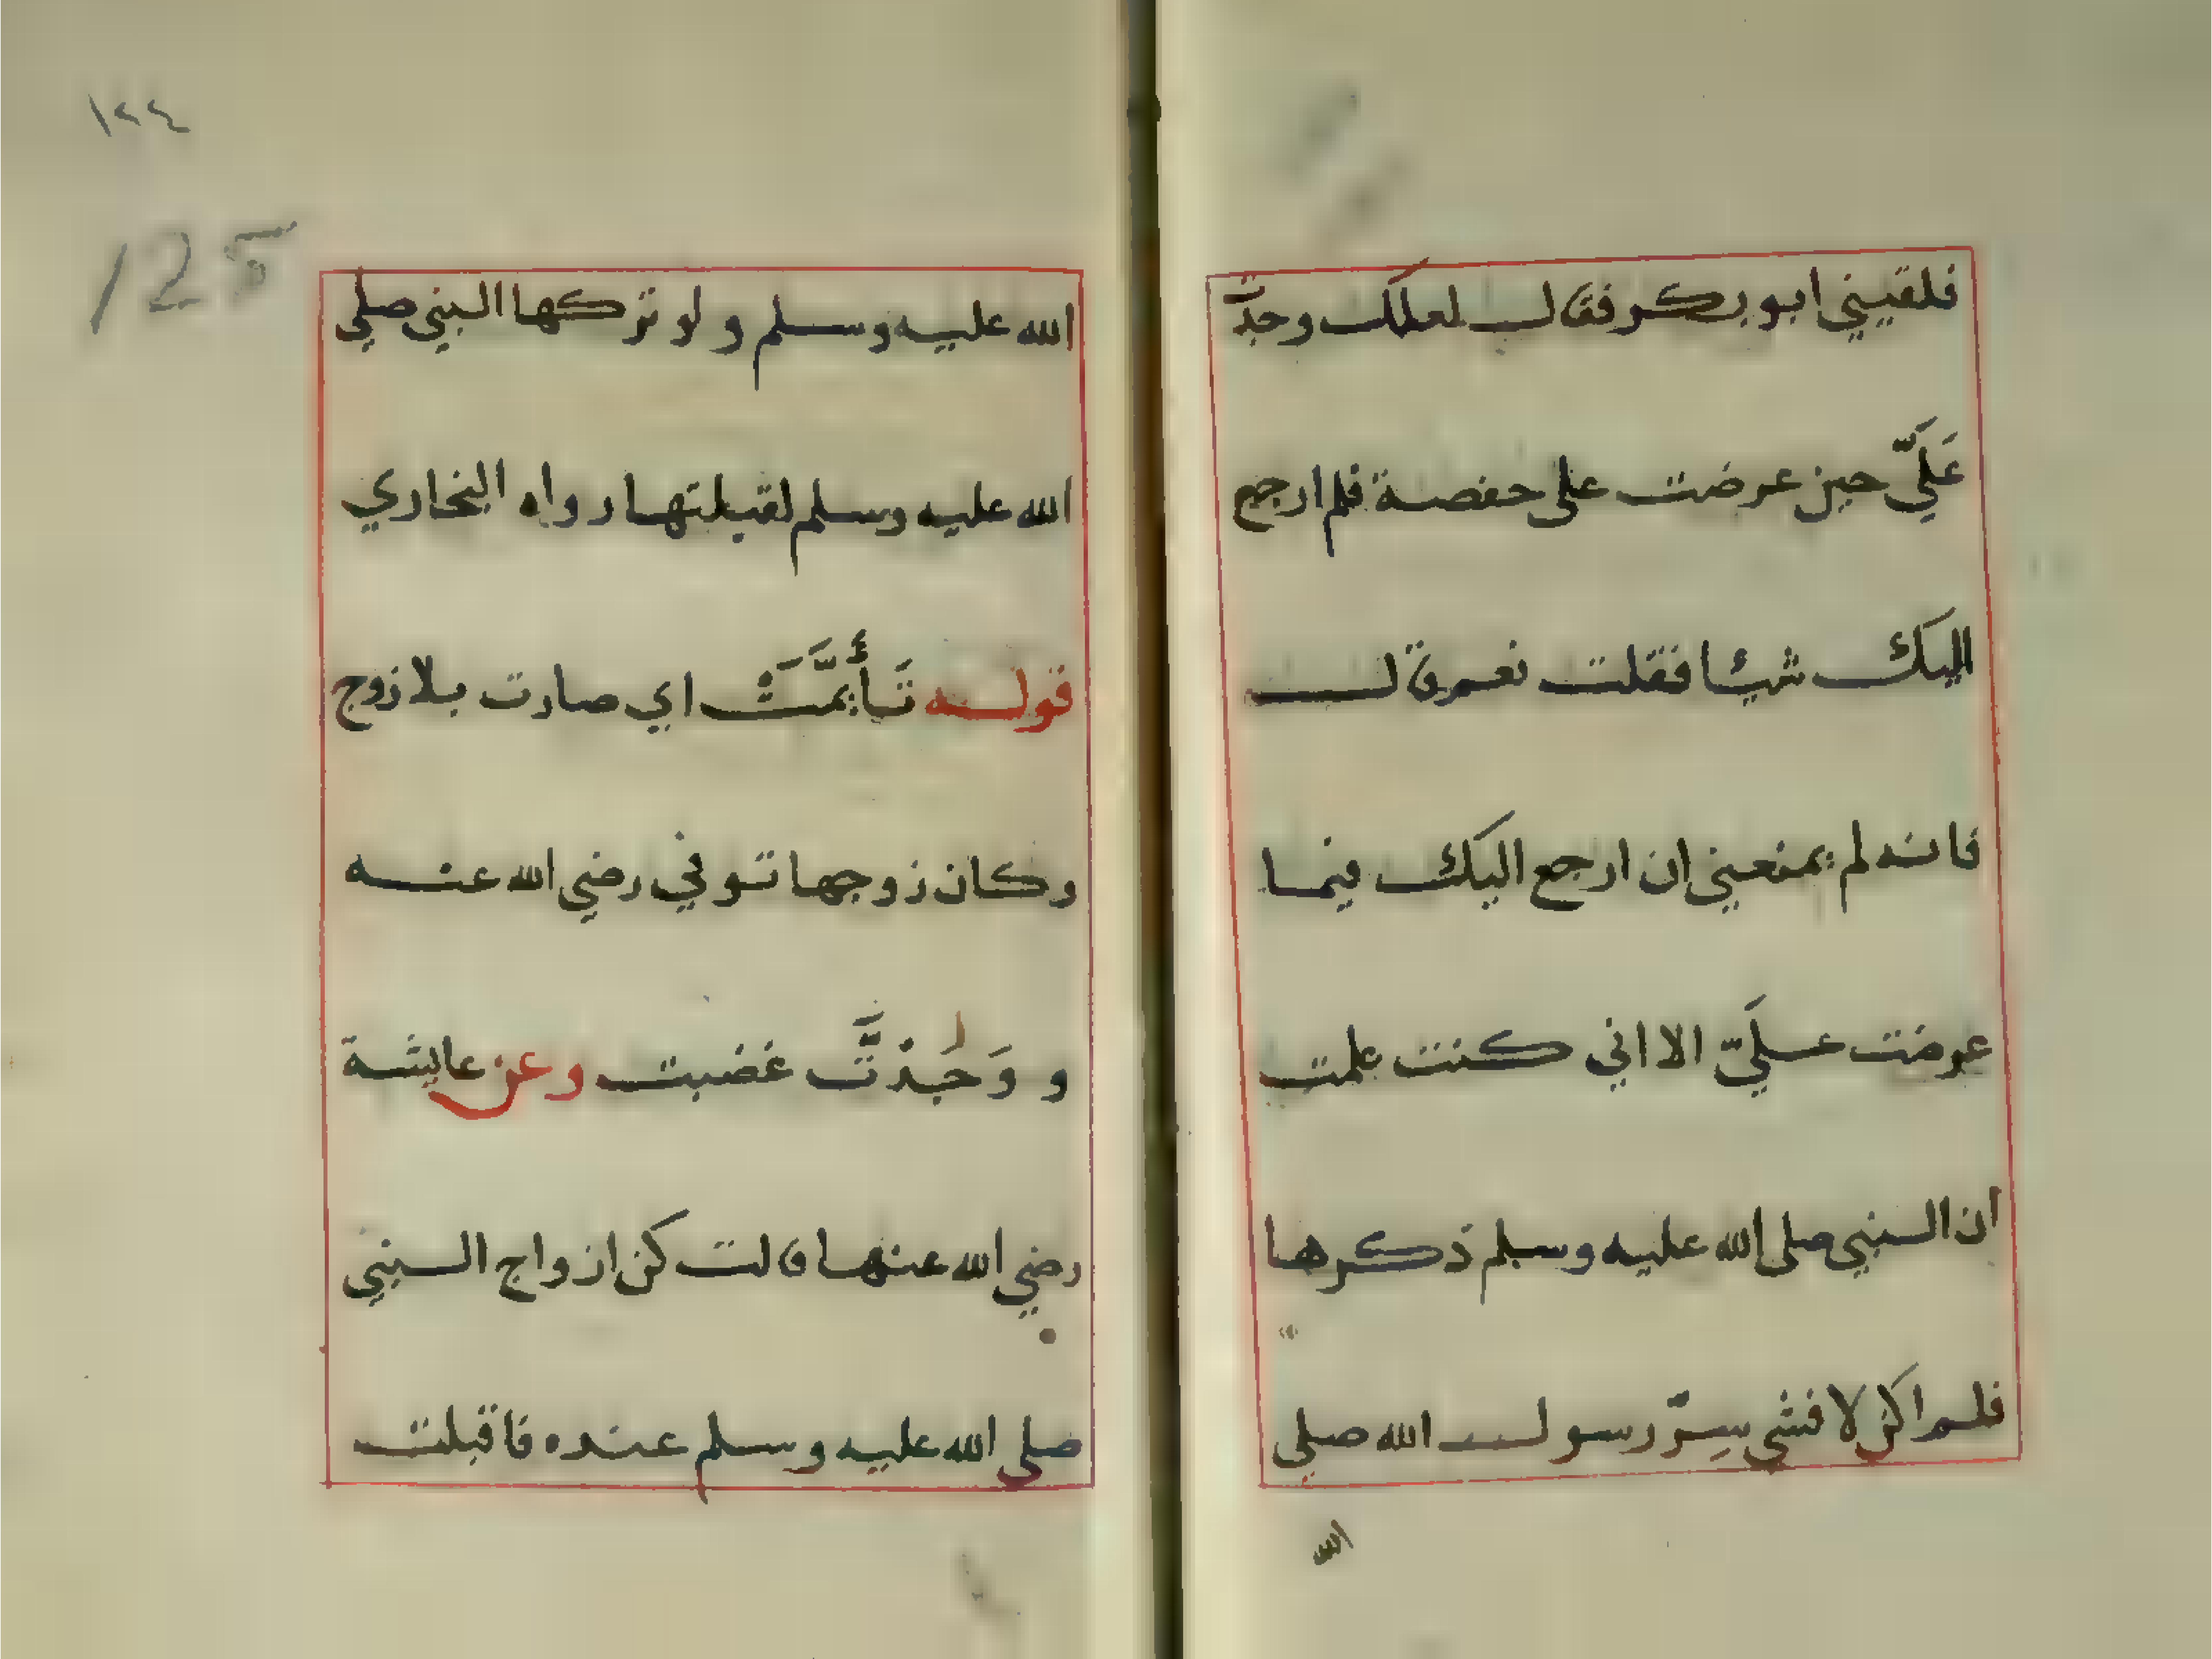 فلقيني ابو بكر فقال لعلك وجدتّ
عَلَيَّ حين عرضت على حفصة فلم ارجع
اليك شيئا فقلت نعم قال
فانه لم يمنعني ان ارجع اليك فيما
عرضت عليّ الا اني كنت علمت
ان النبي صلى الله عليه وسلم ذكرها
فلم اكن لافشي سِرّ رسول الله صلى
الله
١٢٤
125
الله عليه وسلم ولو تركها النبي صلي
الله عليه وسلم لقبلتها رواه البخاري
قوله تَأَيَّمَتْ اي صارت بلا زوج
وكان زوجها توفي رضي الله عنه
و وَجَدْتَّ غضبت وعن عايشة
رضي الله عنها قالت كن ازواج النبي
صلي الله عليه وسلم عنده فاقبلت